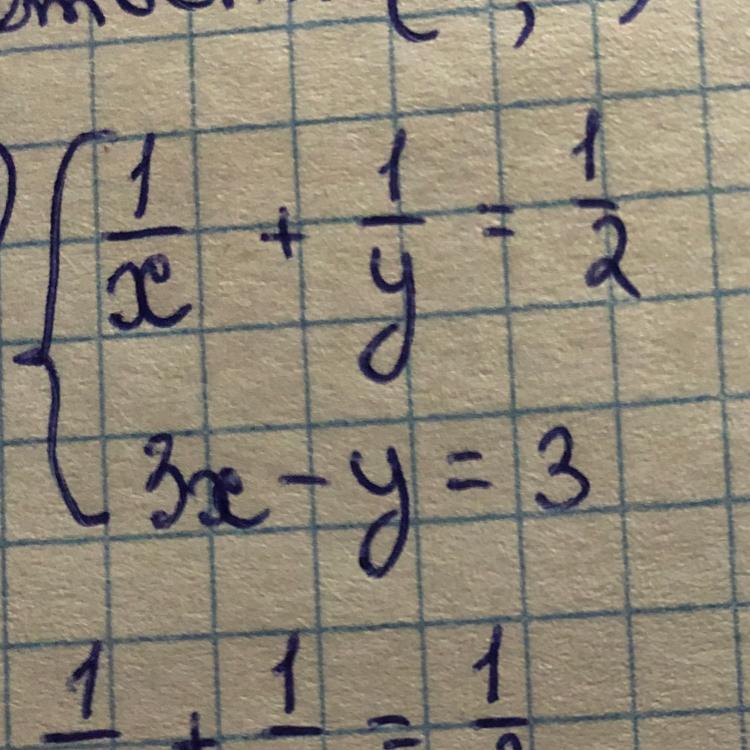 1/x + 1/y = 1/2
3x - y = 3
1 + 1 = 1